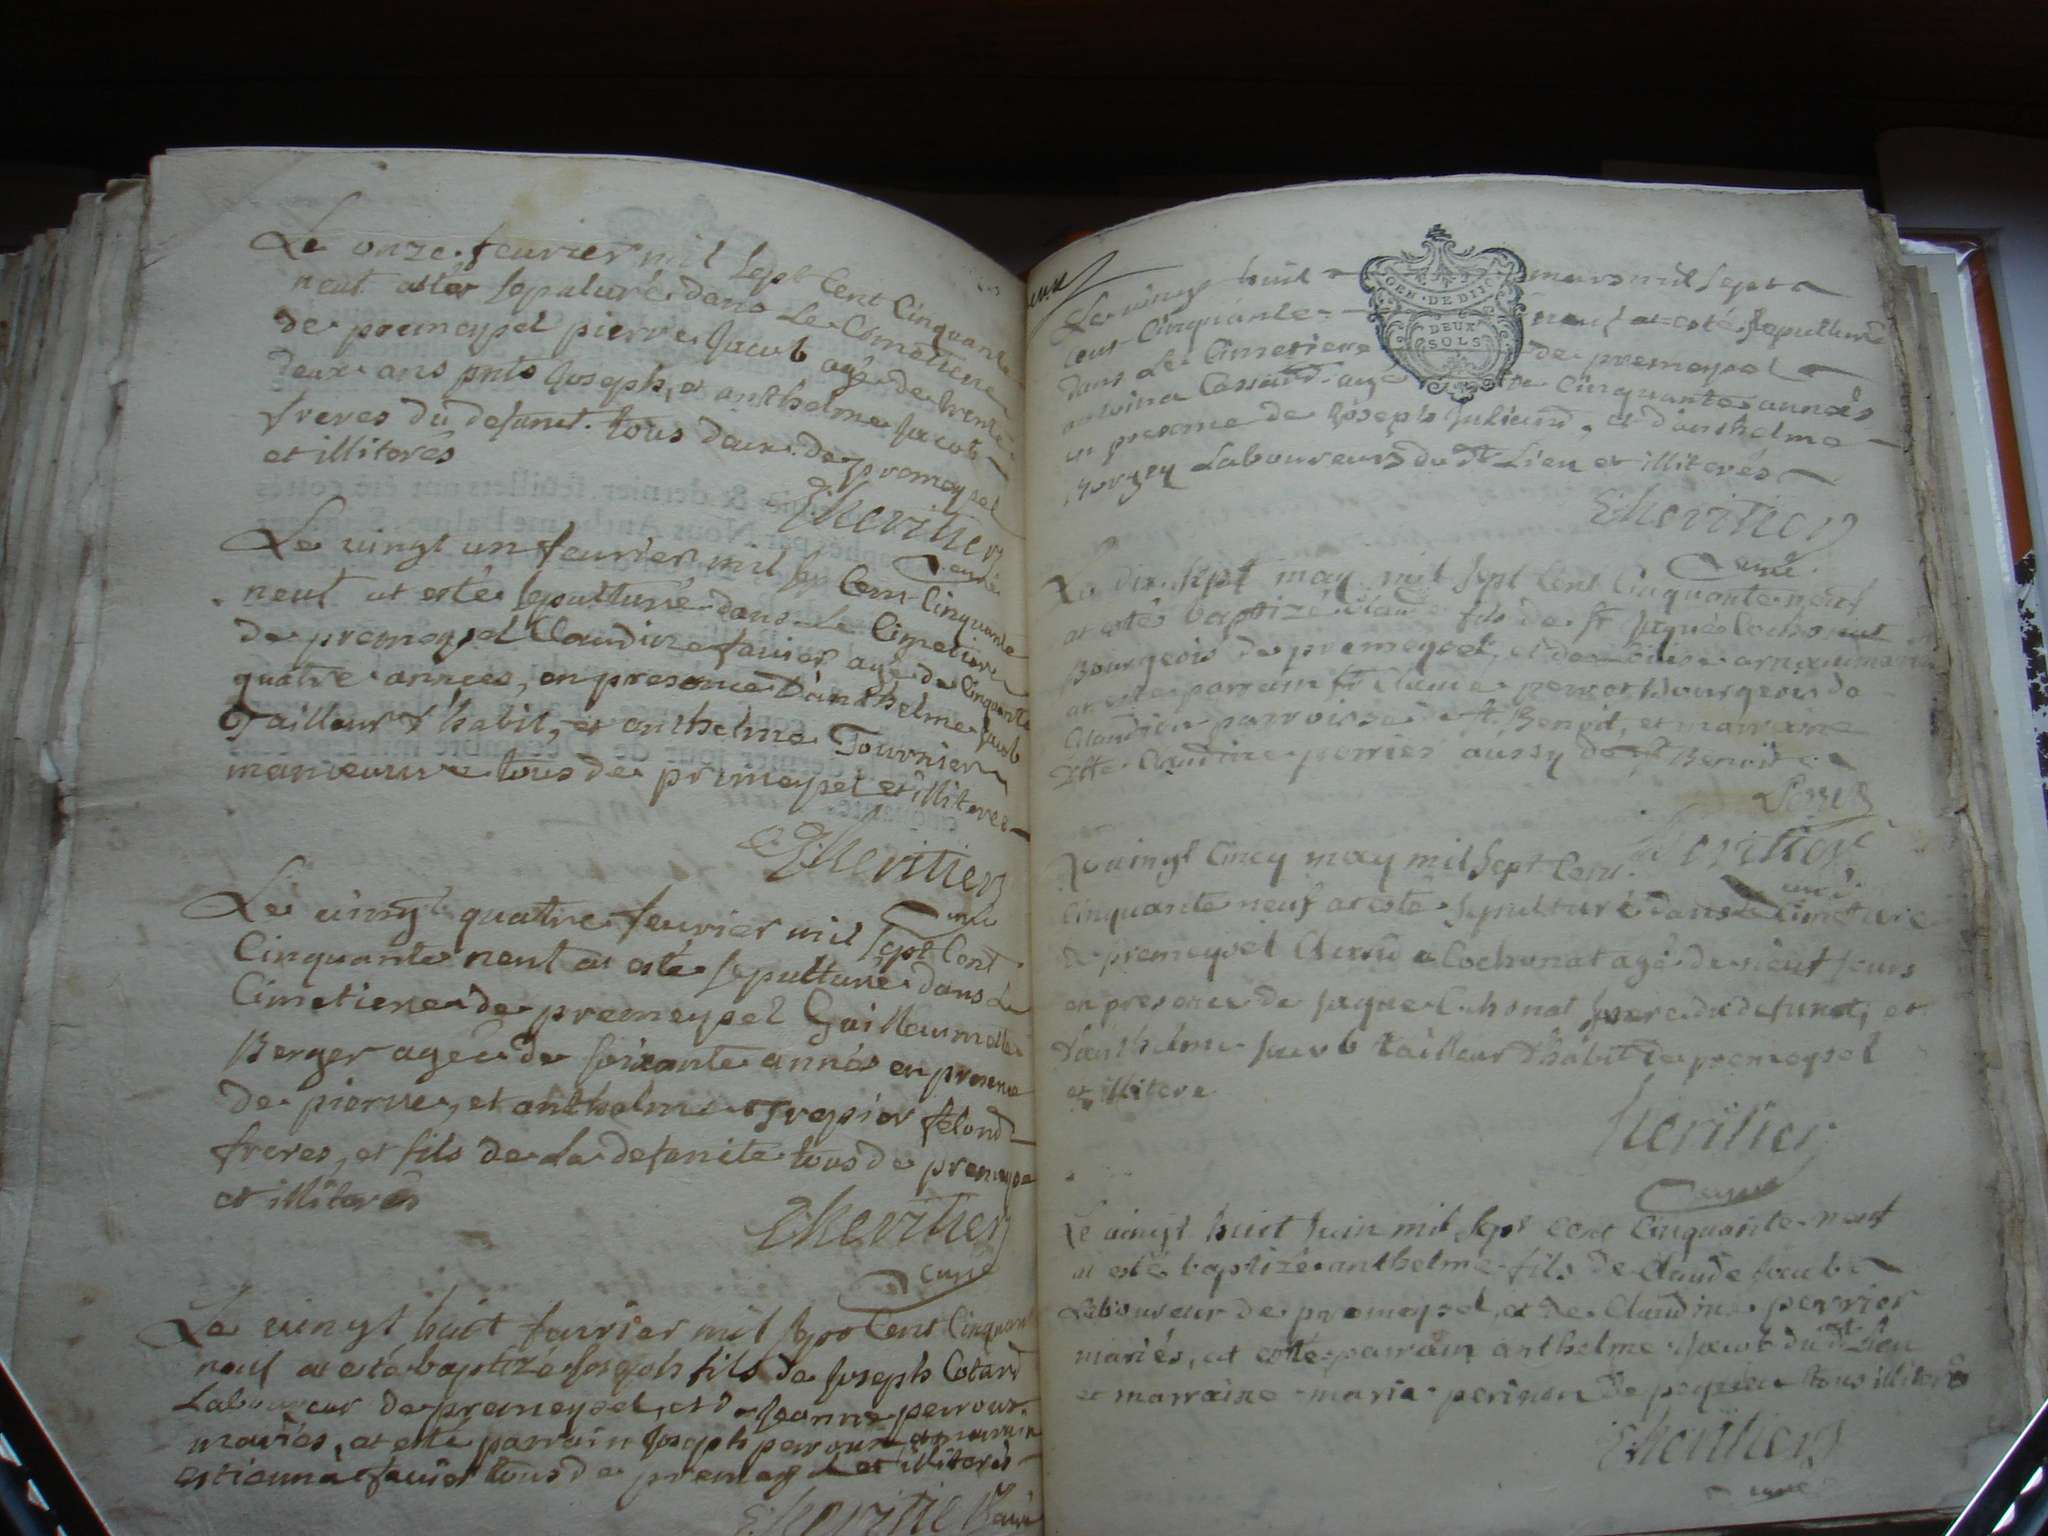 Le onze feurier mil sept Cent Cinquante
neuf at été sepulturé dans Le Cimetiere
de premeysel pierre Jacob agé de trente
deux ans pnts Joseph, et anthelme Jacob
freres du defunt. tous deux de premeysel
et illiterés
Lheritier
curé
Le vingt un feurier mil sep Cent Cinquante
neuf at esté sepulturé dans Le Cimetiere
de premeysel Claudine favier agé de Cinquante
quatre années, en presence d'anthelme Jacob
Tailleur d'habit, et anthelme Tournier
manoeuvre tous de premeysel et illiteres
Lheritier
curé
Le vingt quatre feurier mil sept Cent
Cinquante neuf at esté sepulturé dans Le
Cimetiere de premeysel Guillaumette
Berger agée de soixante annés en presence
de pierre, et anthelme Trepier
freres, et fils de La defunte tous de premeyse
et illiterés
Lheritier
curé
Le vingt huit feurier mil sept Cent Cinquant
neuf at esté baptizé Joseph fils de Joseph Cotard
Laboureur de premeysel, et de Jeanne perroux
mariés, at esté parrain Joseph perroux et marraine
estienna favier tous de premeysel et illiterés
Lheritier Curé
GEN · DE DIJON
DEUX
SOLS
Le vingt huit mars mil sept
cent Cinquante neuf at esté sepulturé
dans Le Cimetiere de premeysel
agé de Cinquante années
en presence de Joseph Juliand, et d'anthelme
Laboureurs du dt Lieu et illiterés
Lheritier
curé
Le dix sept may mil sept Cent Cinquante neuf
at estés baptizé Claude fils de sr Jaque Cochonat
Bourgeois de premeysel, et de mariés
at esté parrain sr Claude perret bourgeois de
parroisse de st Benoit, et marraine
Claudine perrier aussy de st Benoit
Lheritier
curé
Le vingt Cincq may mil sept Cent
Cinquante neuf at esté sepulturé dans le Cimetiere
de premeysel Claude Cochonat agé de neuf jours
en presence de Jaque Cochonat pere du defunct, et
d'anthelme Jacob tailleur d'habit de premeysel
et illitere
Lheritier
curé
Le vingt huit Juin mil sept cent Cinquante neuf
at esté baptizé anthelme fils de Claude Jacob
Laboureur de premeysel, et de Claudine perrier
mariés, at esté parrain anthelme Jacob du dt Lieu
et marraine maria perinon de peyrieu tous illiterés
Lheritier
curé